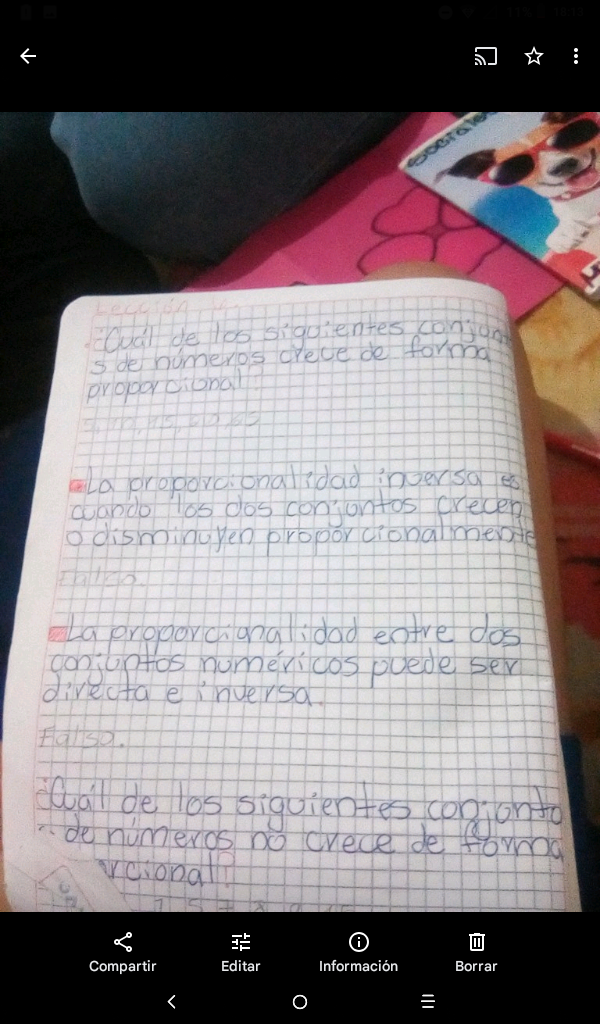 Sociales
Lección 4.
¿Cuál de los siguientes conjunt
s de números crece de forma
proporcional?
La proporcionalidad inversa es
cuando los dos conjuntos crecen
o disminuyen proporcionalmente
Falso.
La proporcionalidad entre dos
conjuntos numéricos puede ser
directa e inversa.
Falso.
¿Cuál de los siguientes conjunto
de números no crece de forma
orcional?
Compartir
Editar
Información
Borrar